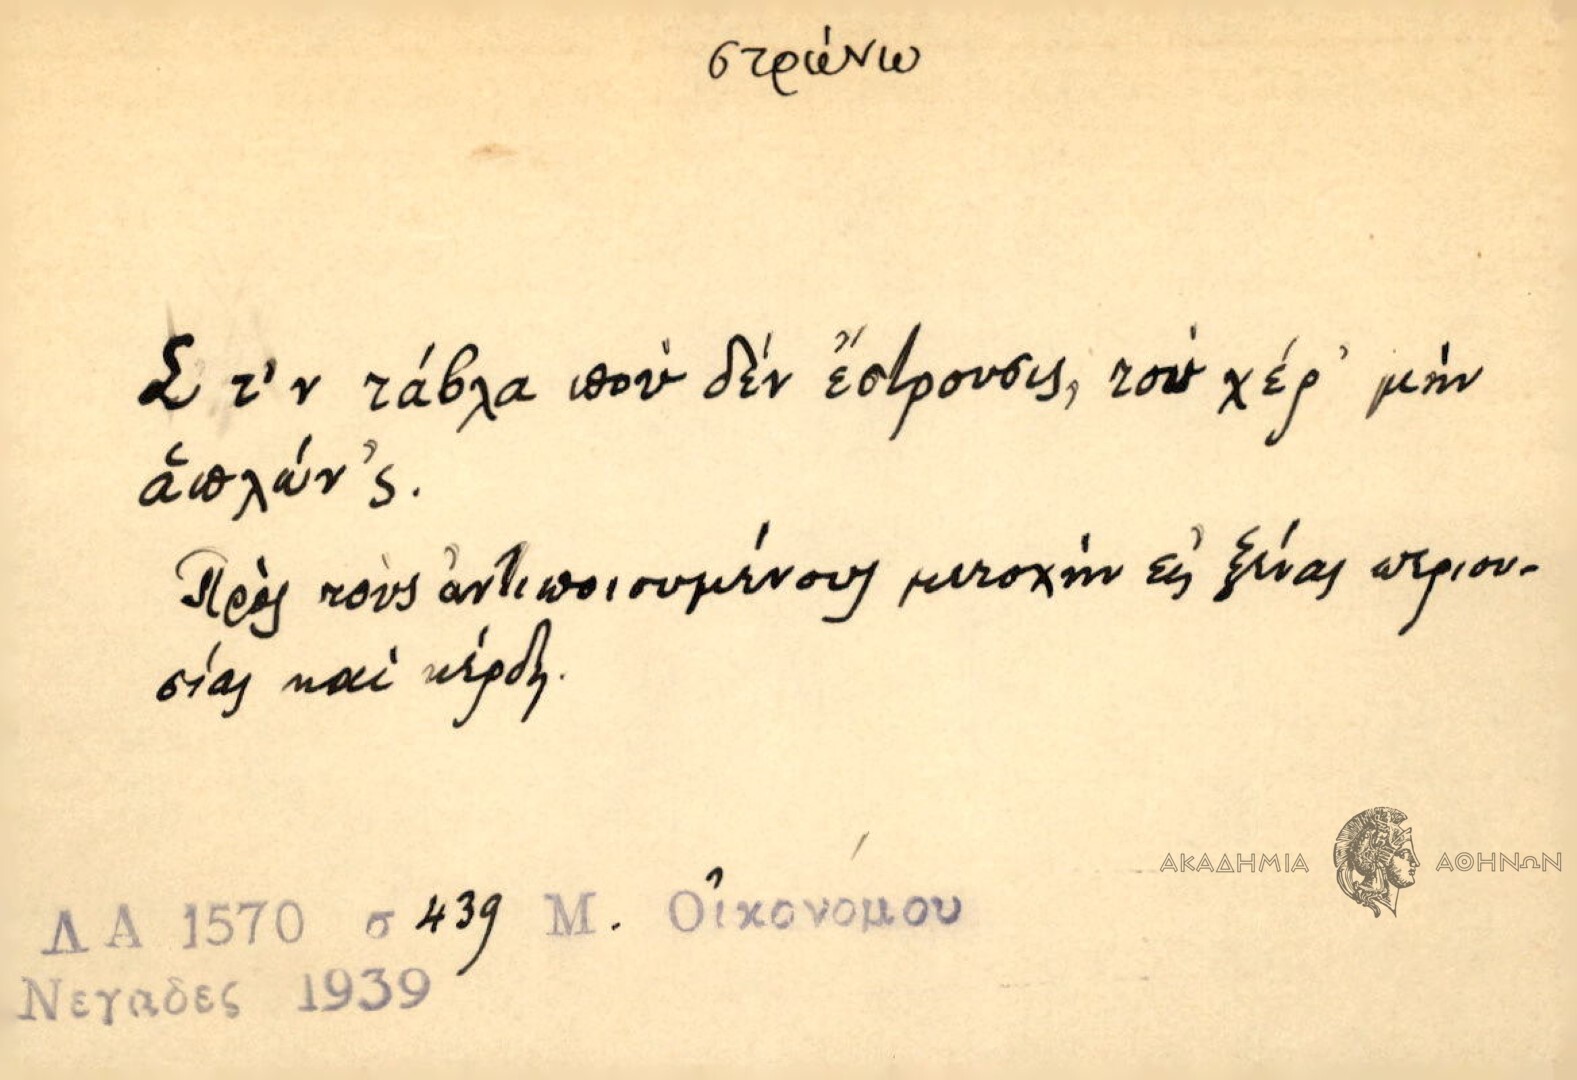 στρώνω
Σ τ' ν τάβλα ποὺ δέν ἔστρουσις, τοὺ χέρ' μήν
ἁπλών'ς.
Πρὸς τοὺς ἀντιποιουμένους μετοχήν εἰς ξένας περιου-
σίας καὶ κέρδη.
ΑΚΑΔΗΜΙΑ ΑΘΗΝΩΝ
ΛΑ 1570 σ 439 Μ. Οἰκονόμου
Νεγαδες 1939